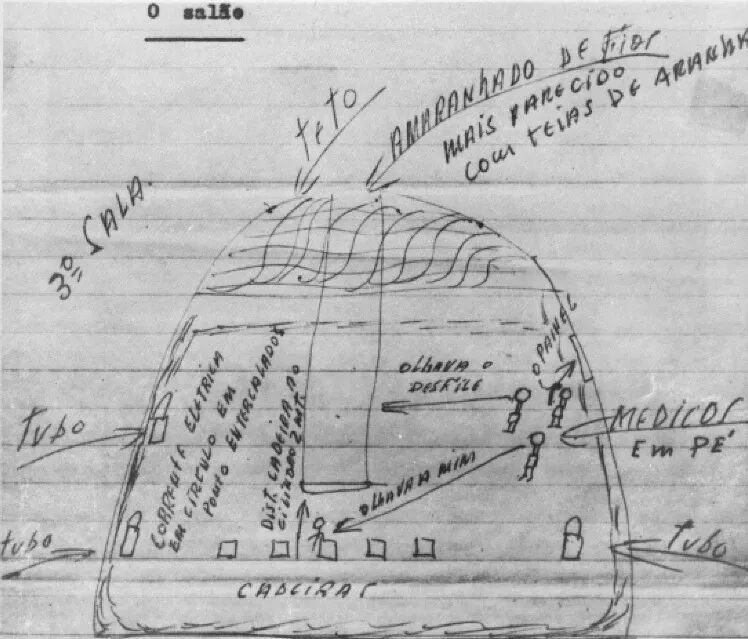 O salão
TETO
AMARANHADO DE FIOS
MAIS PARECIDO
COM TEIAS DE ARANHA
3º SALA.
O PAINEL
OLHAVA O
DESFILE
MEDICOS
EM PÉ
TUBO
CORRENTE ELETRICA
EM CIRCULO EM
PONTO ENTERCALADOS
DIST. CADEIRA AO
2 MT.
OLHAVA A MIM
TUBO
TUBO
CADEIRAS